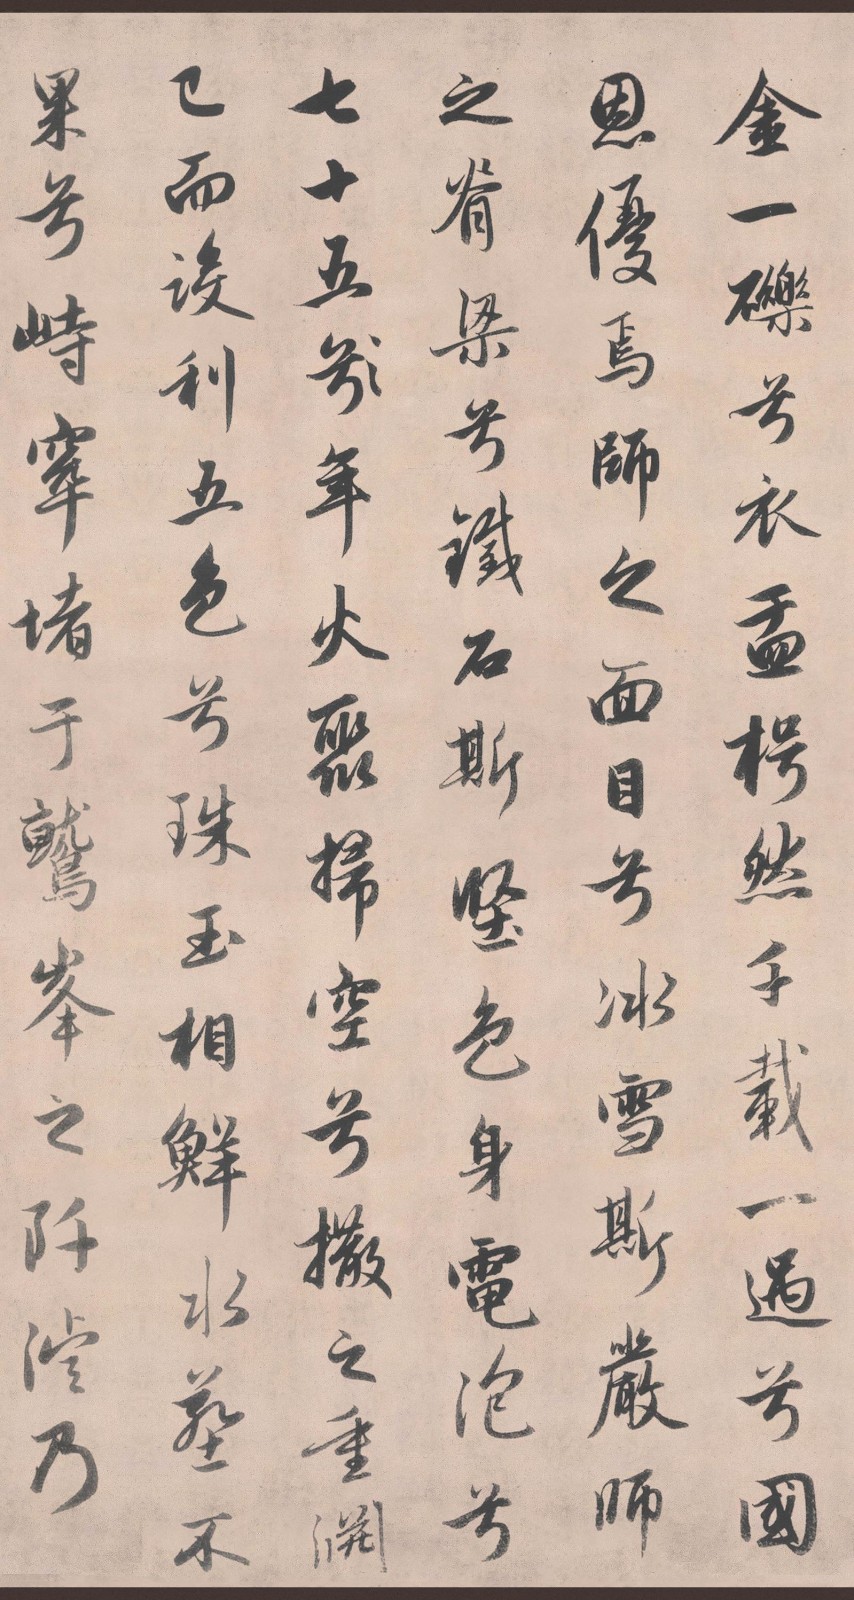 金一礫兮衣盂枵然千載一遇兮國
恩優焉師之面目兮冰雪斯嚴師
之脊梁兮鐵石斯堅色身電泡兮
七十五齡年火聚掃空兮撒之重淵
已而設利五色兮珠玉相鮮水葬不
果兮峙窣堵于鷲峯之阡澪乃